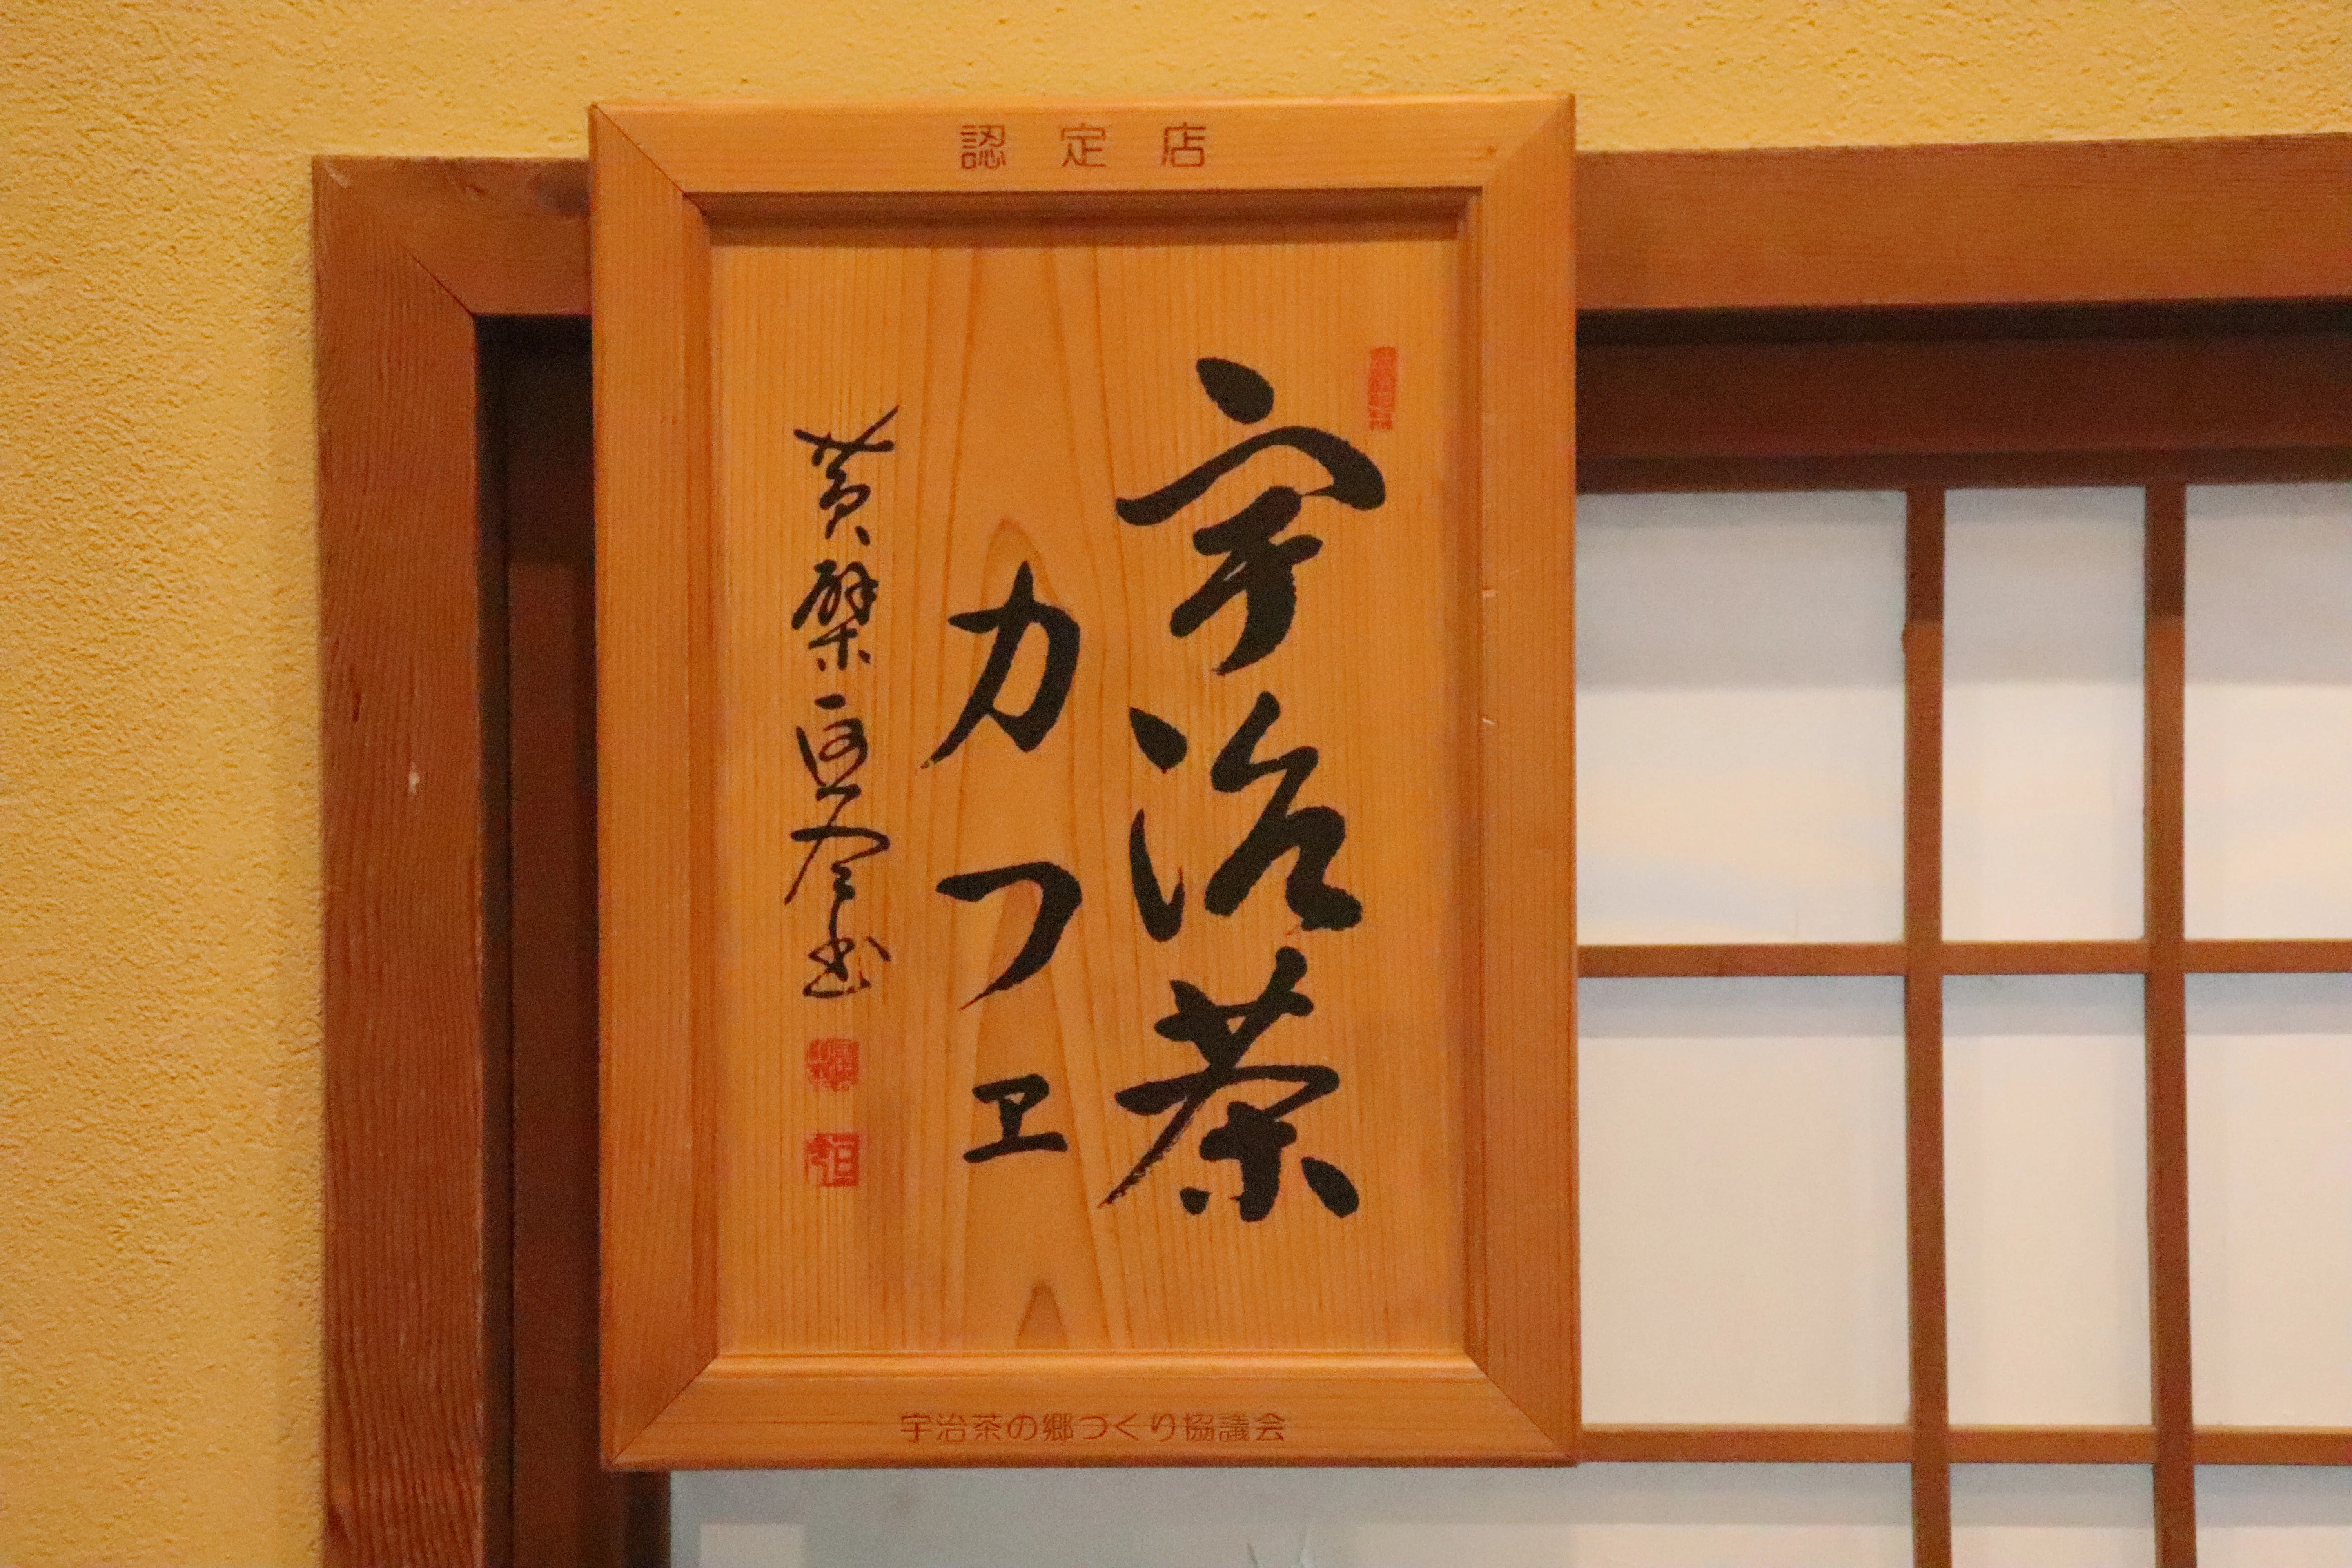 認定店
宇治茶
カフェ
黄檗
書
宇治茶の郷づくり協議会